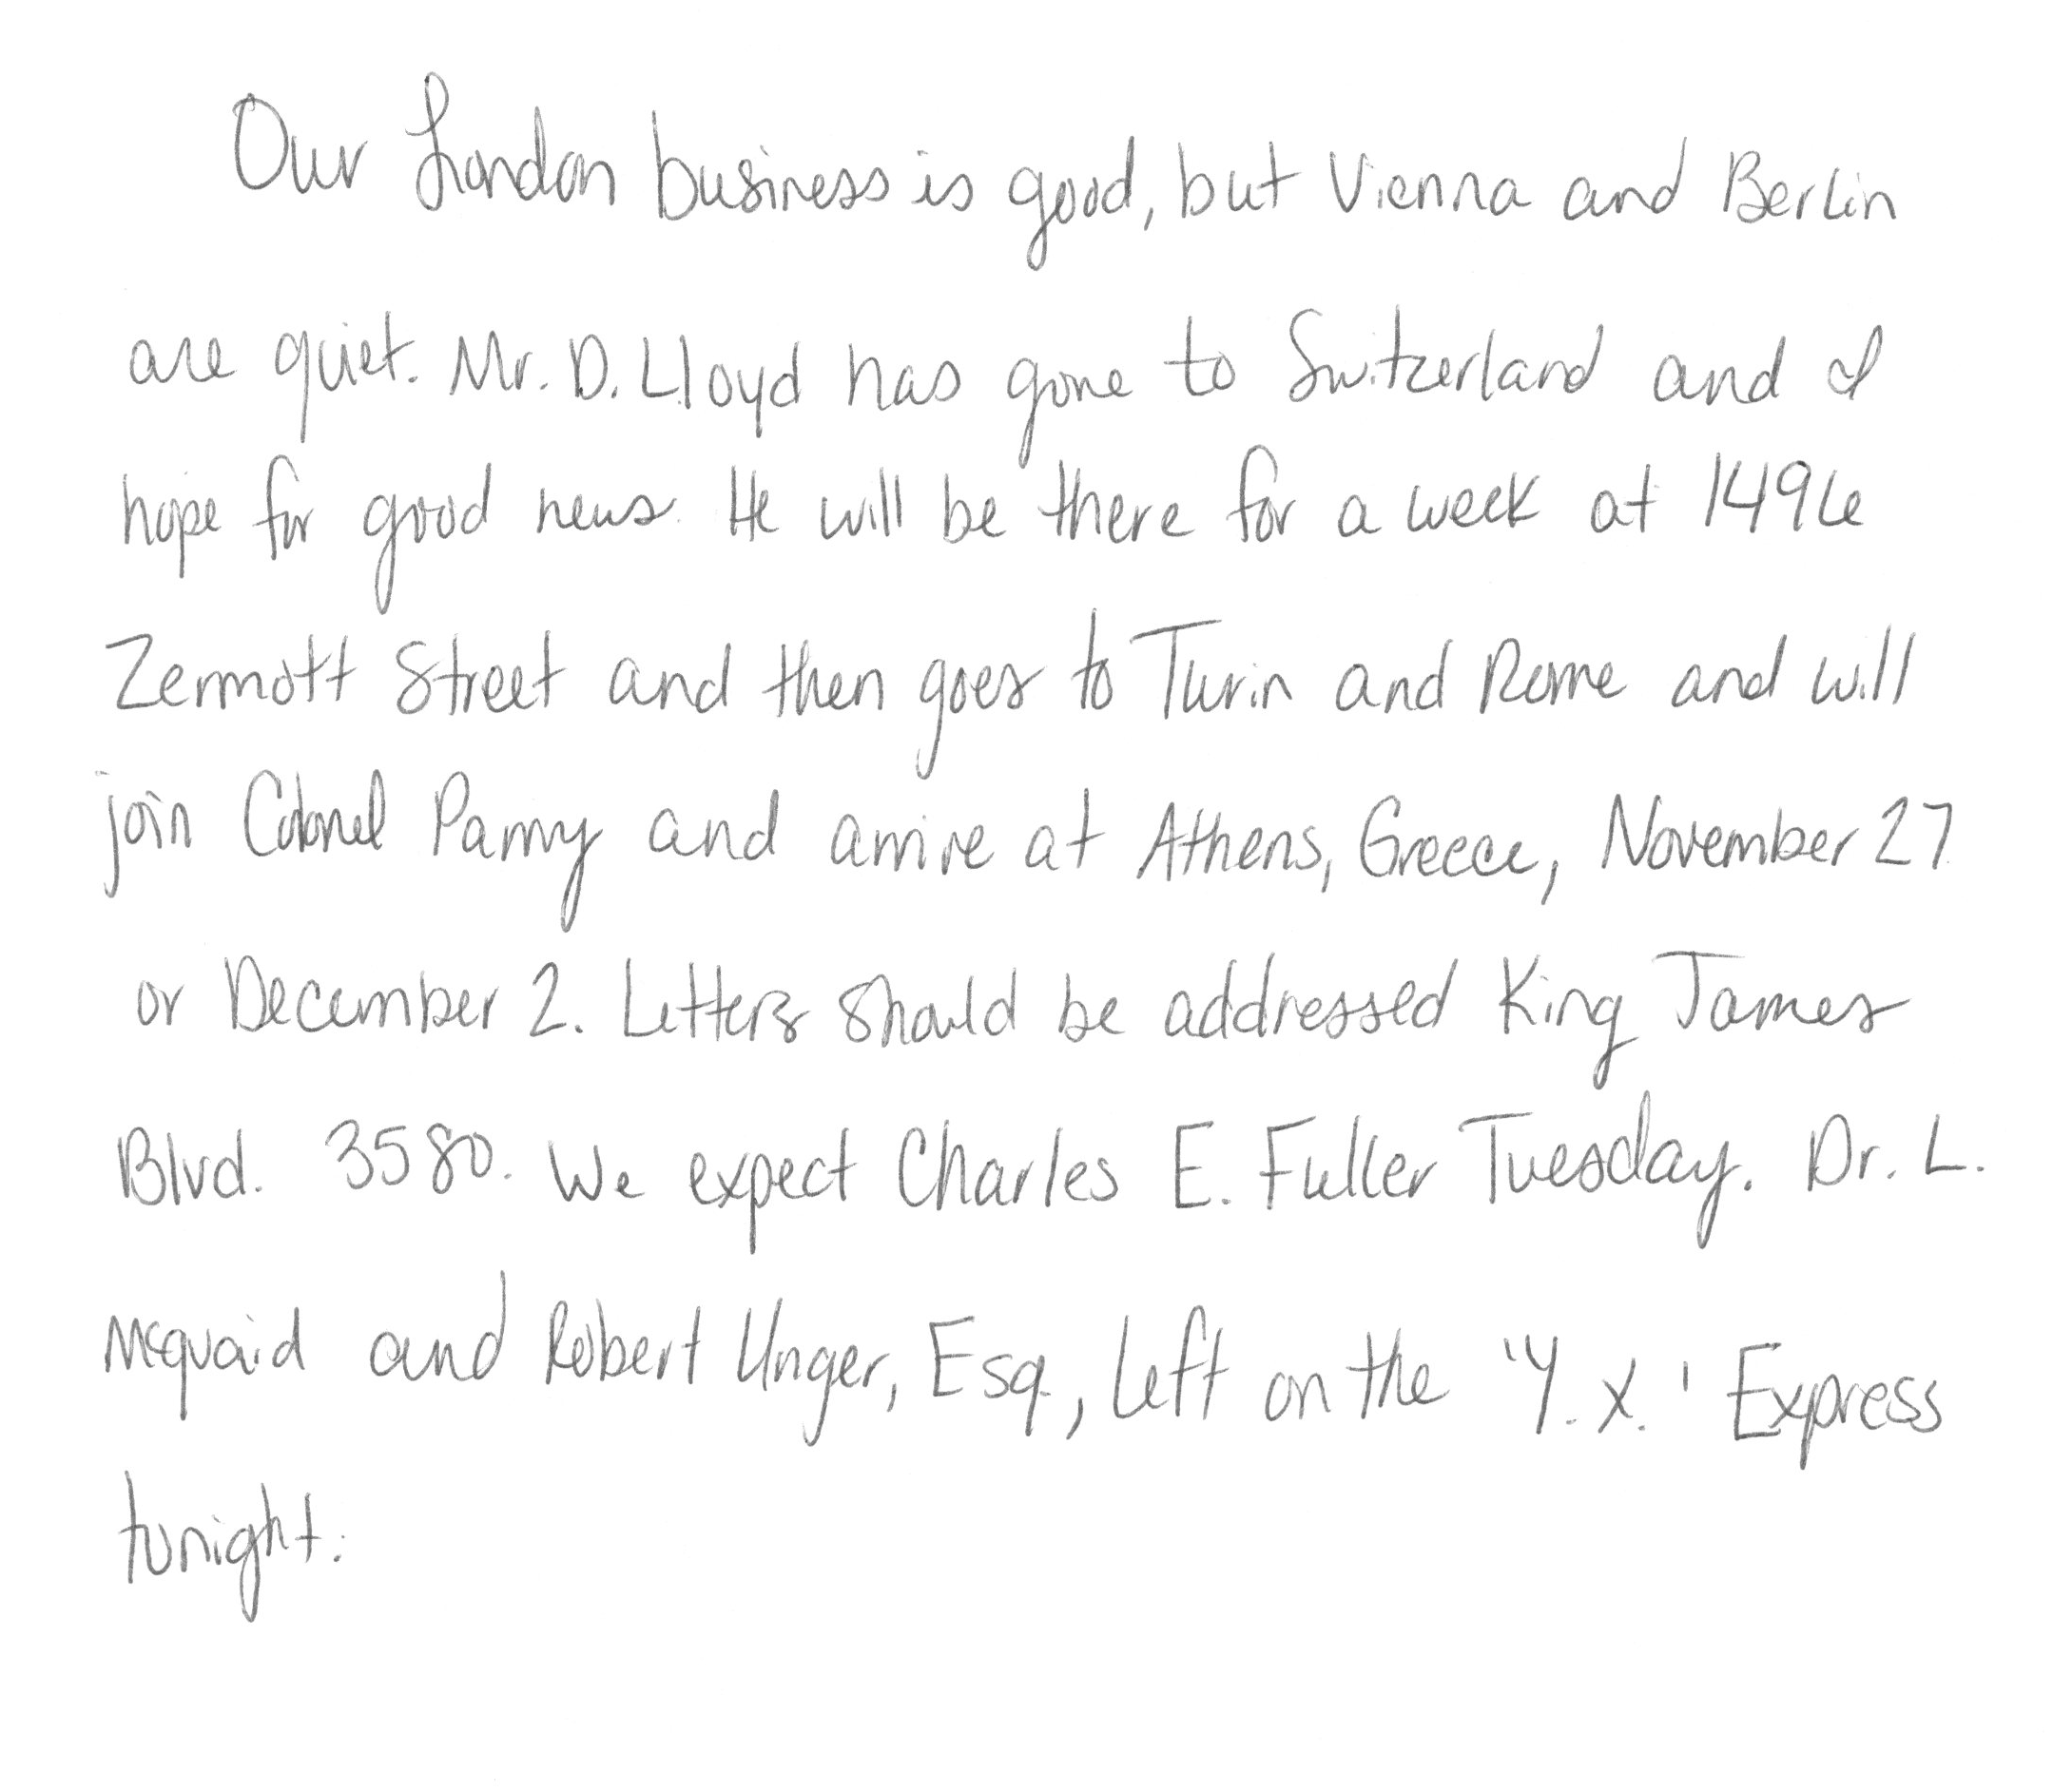 Our London business is good, but Vienna and Berlin
are quiet. Mr. D. Lloyd has gone to Switzerland and I
hope for good news. He will be there for a week at 1496
Zermott Street and then goes to Turin and Rome and will
join Colonel Parry and arrive at Athens, Greece, November 27
or December 2. Letters should be addressed King James
Blvd. 3580. We expect Charles E. Fuller Tuesday. Dr. L.
McQuaid and Robert Unger, Esq., left on the 'Y.X.' Express
tonight.